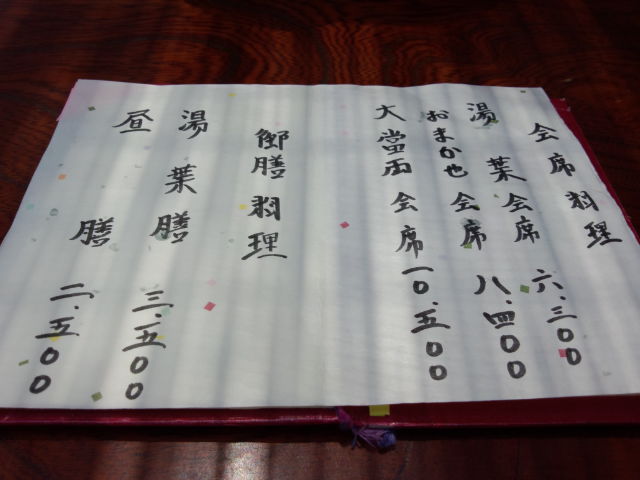 会席料理
湯葉会席 六.三〇〇
おまかせ会席 八.四〇〇
会席 一〇.五〇〇
御膳料理
湯葉膳 三.五〇〇
昼膳 二.五〇〇